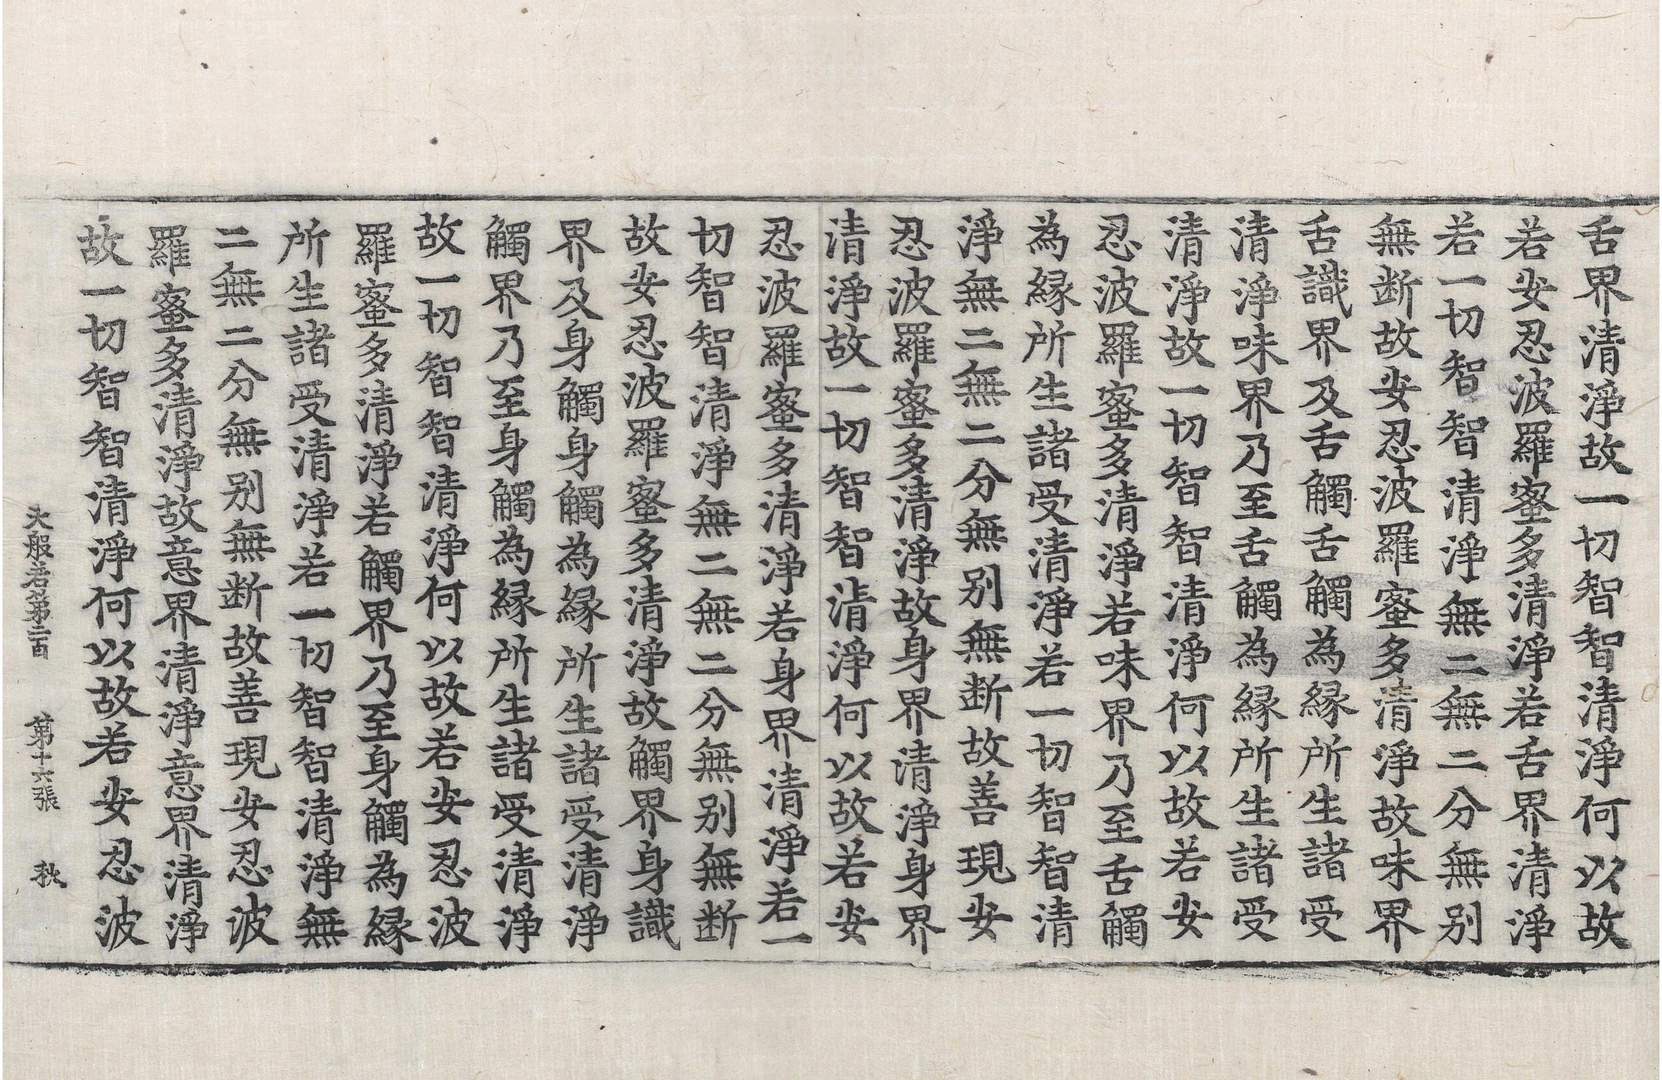 舌界清淨故一切智智清淨何以故
若安忍波羅蜜多清淨若舌界清淨
若一切智智清淨無二無二分無別
無断故安忍波羅蜜多清淨故味界
舌識界及舌觸舌觸為縁所生諸受
清淨味界乃至舌觸為縁所生諸受
清淨故一切智智清淨何以故若安
忍波羅蜜多清淨若味界乃至舌觸
為縁所生諸受清淨若一切智智清
淨無二無二分無別無断故善現安
忍波羅蜜多清淨故身界清淨身界
清淨故一切智智清淨何以故若安
忍波羅蜜多清淨若身界清淨若一
切智智清淨無二無二分無別無断
故安忍波羅蜜多清淨故觸界身識
界及身觸身觸為縁所生諸受清淨
觸界乃至身觸為縁所生諸受清淨
故一切智智清淨何以故若安忍波
羅蜜多清淨若觸界乃至身觸為縁
所生諸受清淨若一切智智清淨無
二無二分無別無断故善現安忍波
羅蜜多清淨故意界清淨意界清淨
故一切智智清淨何以故若安忍波
大般若第二百 第十六張 秋